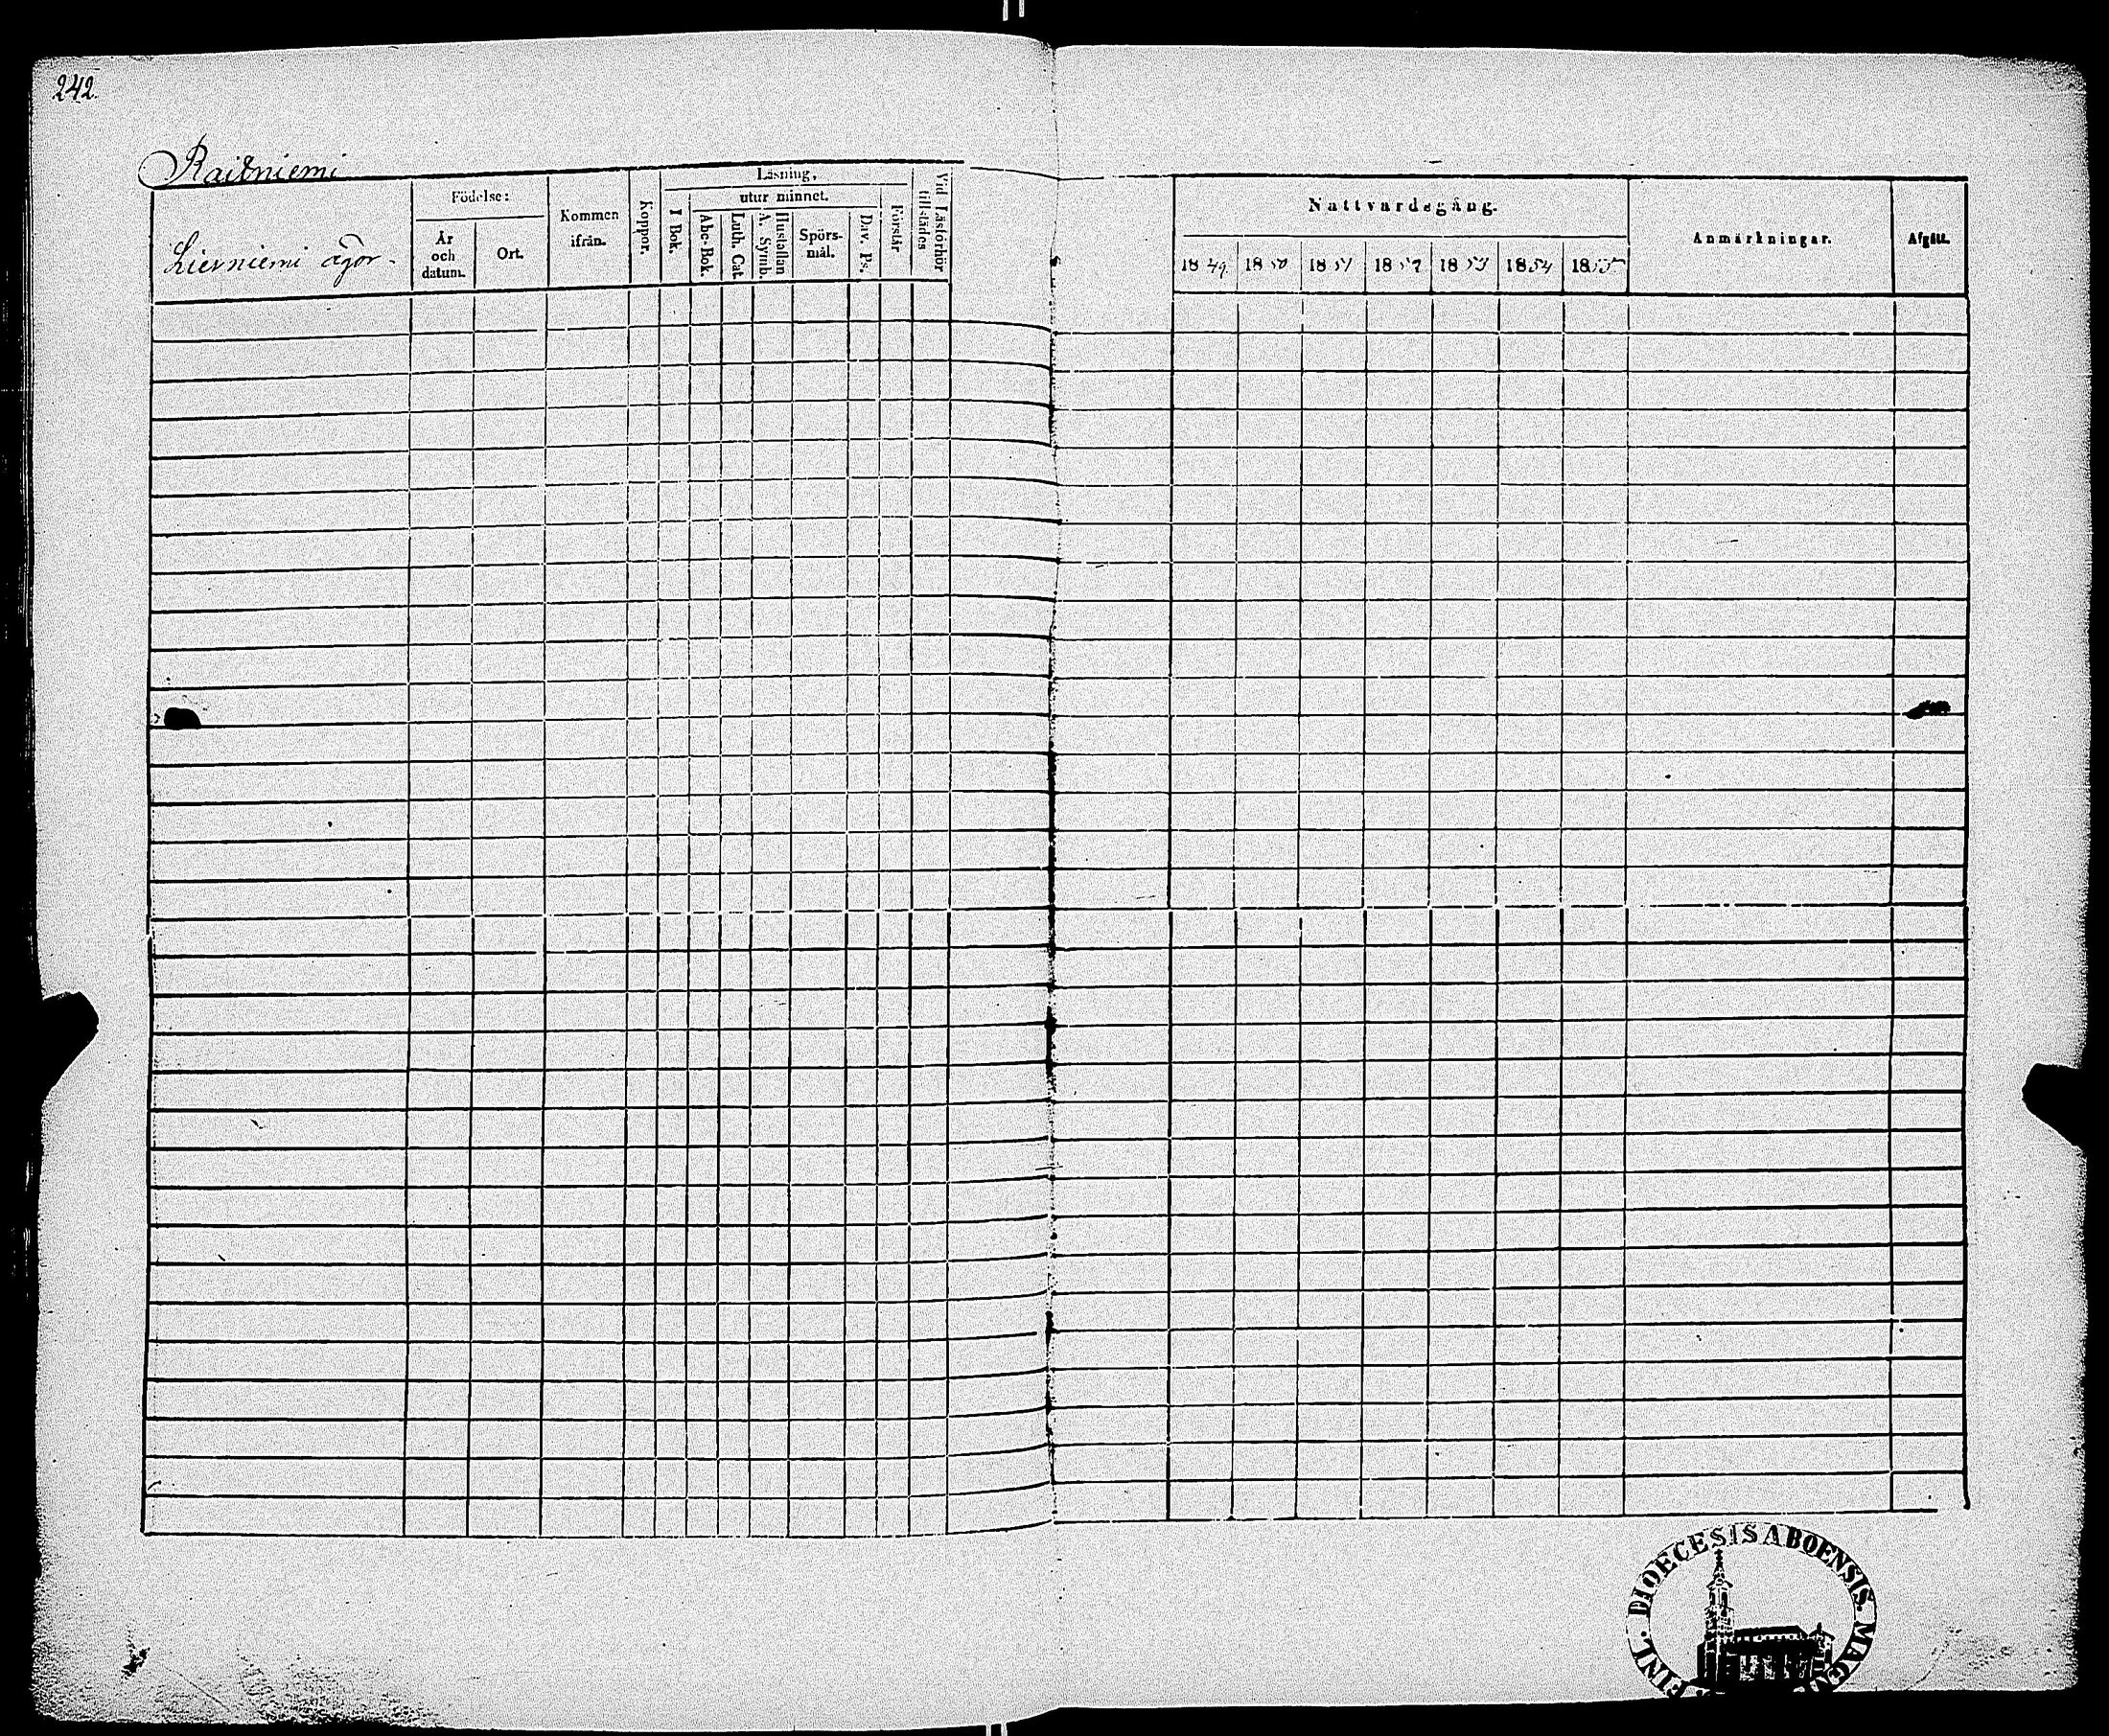 242.
Raitniemi
Lierniemi ägor.
Födelse:
År
och
datum.
Ort.
Kommen
ifrån.
Koppor.
Läsning,
I Bok.
utur minnet.
Abc-Bok.
Luth. Cat.
Hustaflan
A. Symb.
Spörs-
mål.
Dav. Ps.
Förstår
Vid Läsförhör
tillstädes
Nattvardsgång.
1849. 1850 1851 1852 1853 1854 1855
Anmärkningar.
Afgått.
DIOECESIS ABOENSIS. MAGNI
FINL.